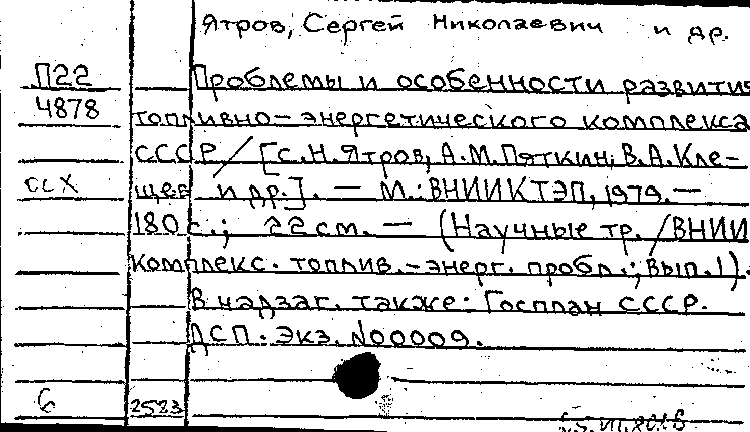 Ятров, Сергей Николаевич и др.
П22 Проблемы и особенности развития
4878 топливно-энергетического комплекса
СССР / [С.Н. Ятров, А.М. Пяткин, В.А. Кле-
ССХ щев и др.]. — М.: ВНИИКТЭП, 1979. —
180 с.; 22 см. — (Научные тр. / ВНИИ
комплекс. топлив.-энерг. пробл.; Вып. 1).
В надзаг. также: Госплан СССР.
ДСП. Экз. N00009.
6 2523